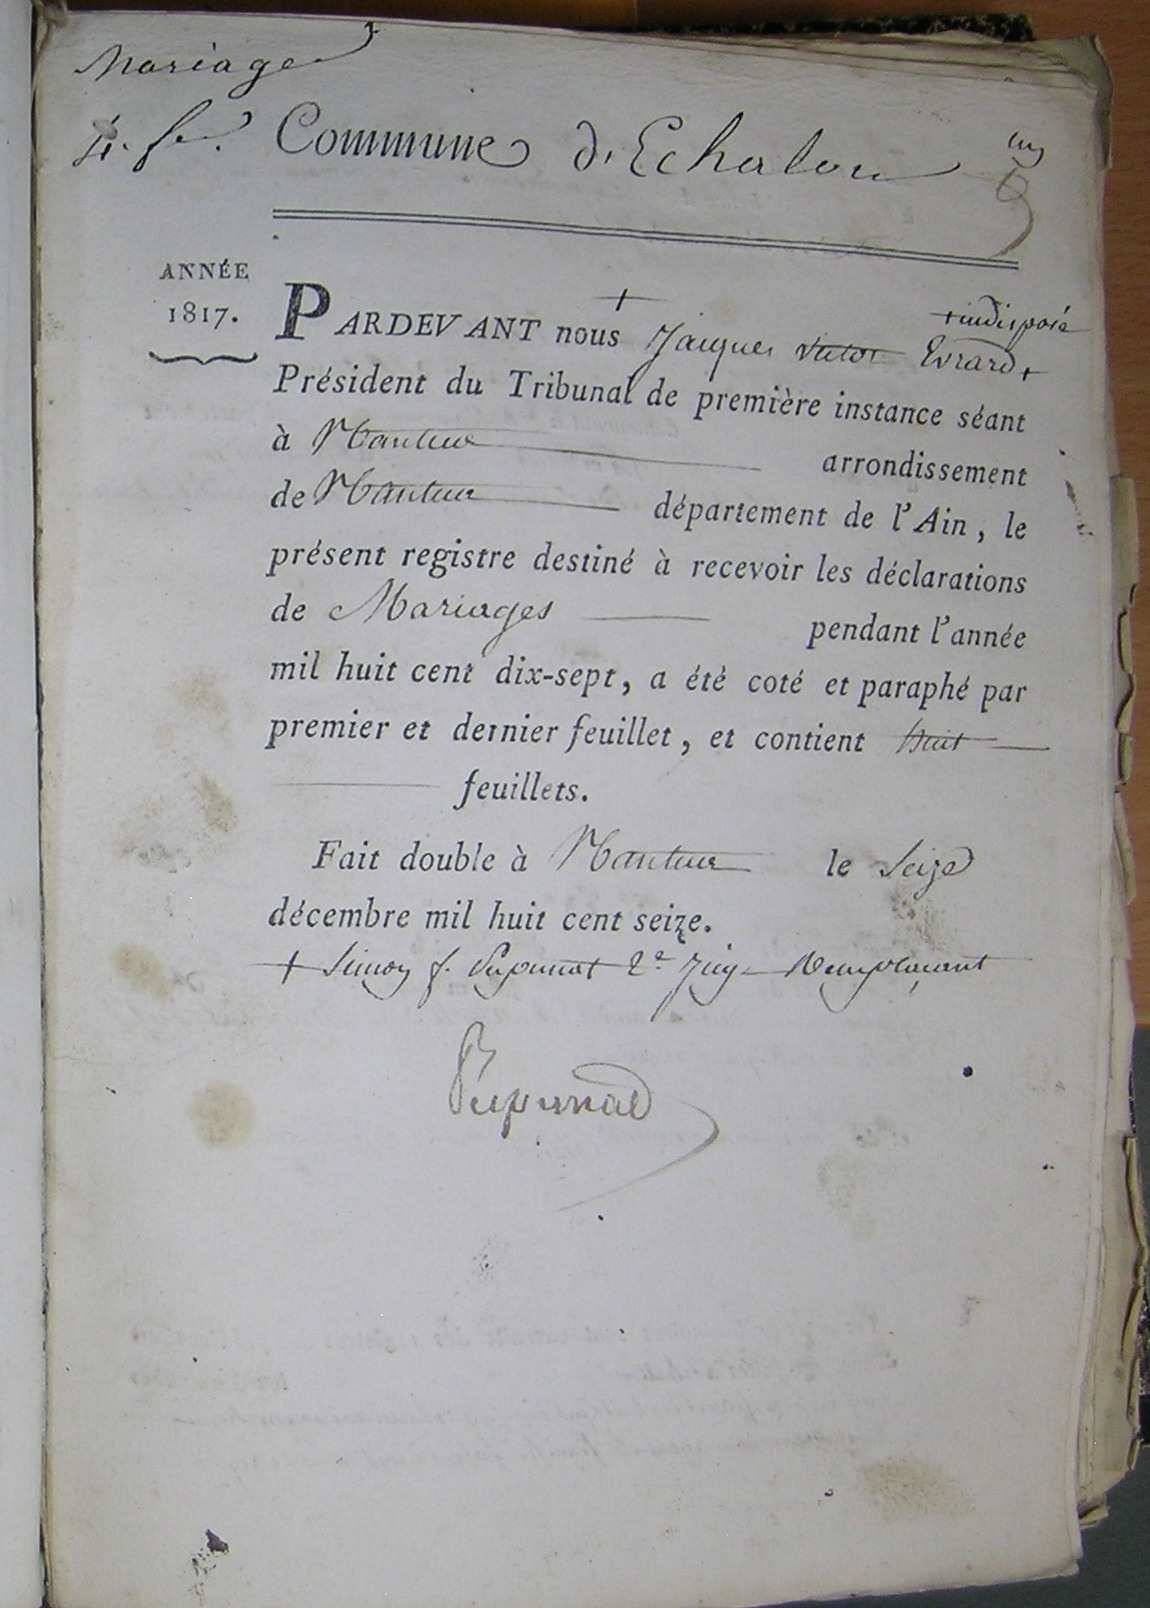 Mariage
4. fe. Commune d'Echalon
un
ANNÉE
1817.
+ +indisposé
PARDEVANT nous Jacques Victor Evrard +
Président du Tribunal de première instance séant
à Nantua arrondissement
de Nantua département de l'Ain, le
présent registre destiné à recevoir les déclarations
de Mariages pendant l'année
mil huit cent dix-sept, a été coté et paraphé par
premier et dernier feuillet, et contient huit
feuillets.
Fait double à Nantua le Seize
décembre mil huit cent seize.
+ Simon f. Puponnat 2e Juge Remplaçant
Puponnat